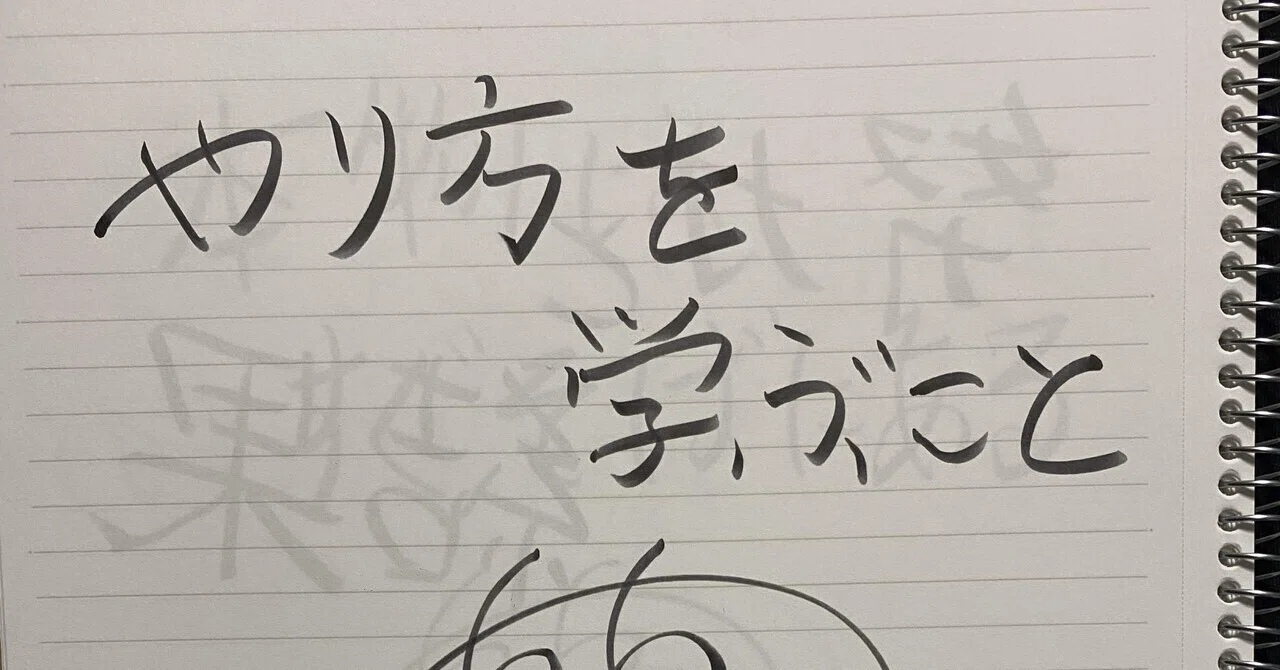 やり方を
学ぶこと